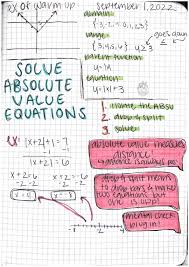 ex of warm up
September 1, 2022
domain
{-3,-2,-1,0,1,2,3}
range
{3,4,5,6} y≥3
goes down
parent function
y=|x|
equation
y=|x|+3
SOLVE
ABSOLUTE
VALUE
EQUATIONS
1. isolate the ABSV
2. drop & split
3. solve
ex:
|x+2|+1=7
-1 -1
|x+2|=6
x+2=6
-2 -2
x+2=-6
-2 -2
absolute value measures
distance!
distance is always pos.
drop & split means
to drop bars & make
two equations but one
is opp
mental check
plug in!